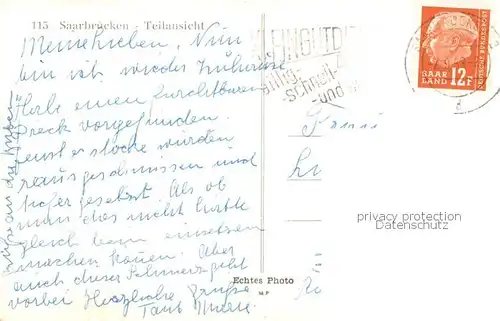 115 Saarbrücken - Teilansicht
Meine Lieben, Nun
bin ich wieder Zuhause
Habe einen furchtbaren
Dreck vorgefunden.
Fensterstöcke wurden
rausgeschmissen und
höher gesetzt. Als ob
man das nicht hätte
gleich beim einsetzen
machen können. Aber
auch dieser Schmerz geht
vorbei Herzliche Grüße
Tante
Grüße an die
KLEINGUTDI
billig-
-schnell-
-und
SAAR
LAND
12F
DEUTSCHE BUNDESPOST
privacy protection
Datenschutz
Echtes Photo